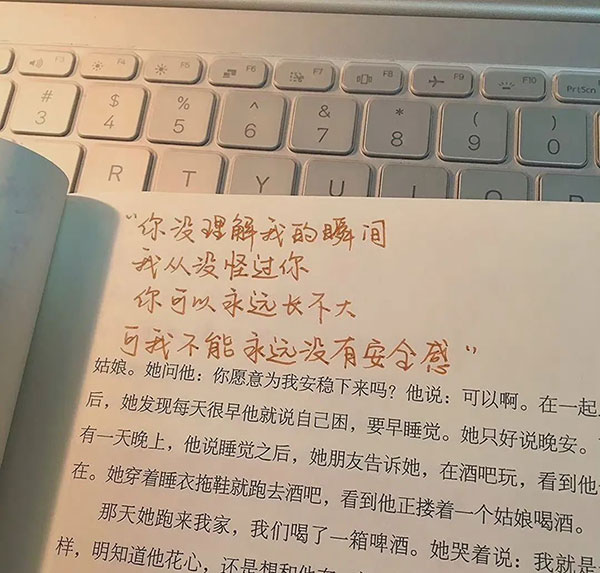 F3 F4 F5 F6 F7 F8 F9 F10 PrtScn
# $ % ^ & * ( )
3 4 5 6 7 8 9 0
R T Y U
“你没理解我的瞬间
我从没怪过你
你可以永远长不大
可我不能永远没有安全感”
姑娘。她问他：你愿意为我安稳下来吗？他说：可以啊。在一起
后，她发现每天很早他就说自己困，要早睡觉。她只好说晚安。
有一天晚上，他说睡觉之后，她朋友告诉她，在酒吧玩，看到他
在。她穿着睡衣拖鞋就跑去酒吧，看到他正搂着一个姑娘喝酒。
那天她跑来我家，我们喝了一箱啤酒。她哭着说：我就是
样，明知道他花心，还是想和他在